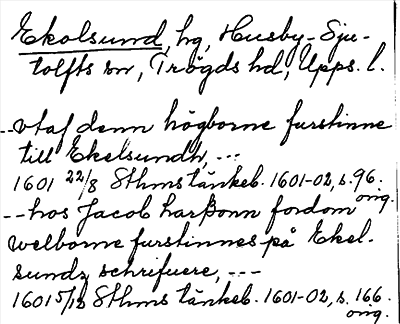 Ekolsund, hg, Husby-Sju-
tolfts sn, Trögds hd, Upps. l.
--utaf denn högborne furstinne
till Ekelsundh, ---
1601 22/8 Sthms tänkeb. 1601-02, s. 96.
orig.
--hos Jacob harßonn fordom
welborne furstinnes på Ekel-
sundz schrifuere, ---
1601 5/12 Sthms tänkeb. 1601-02, s. 166.
orig.